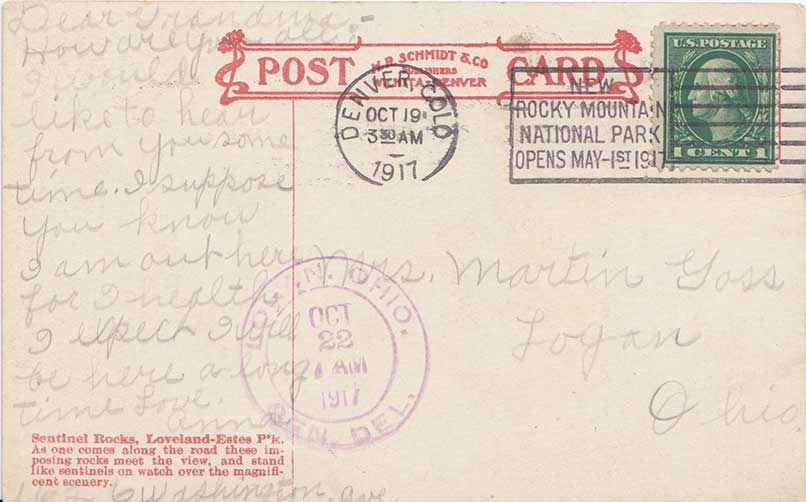 Dear Grandma,-
How are you all.
I would
like to hear
from you some
time. I suppose
you know
I am out here
for I health
I expect I will
be here a long
time Love.
Anna
Washington Ave
POST CARD
H.R. SCHMIDT & CO
PUBLISHERS
DENVER
DENVER, COLO
OCT 19
3 30 AM
1917
NEW
ROCKY MOUNTAIN
NATIONAL PARK
OPENS MAY-1ST 1917
U.S. POSTAGE
1 CENT 1
Mrs. Martin Goss
Logan
Ohio
LOGAN, OHIO.
OCT
22
AM
1917
GEN. DEL.
Sentinel Rocks, Loveland-Estes P'k.
As one comes along the road these im-
posing rocks meet the view, and stand
like sentinels on watch over the magnifi-
cent scenery.